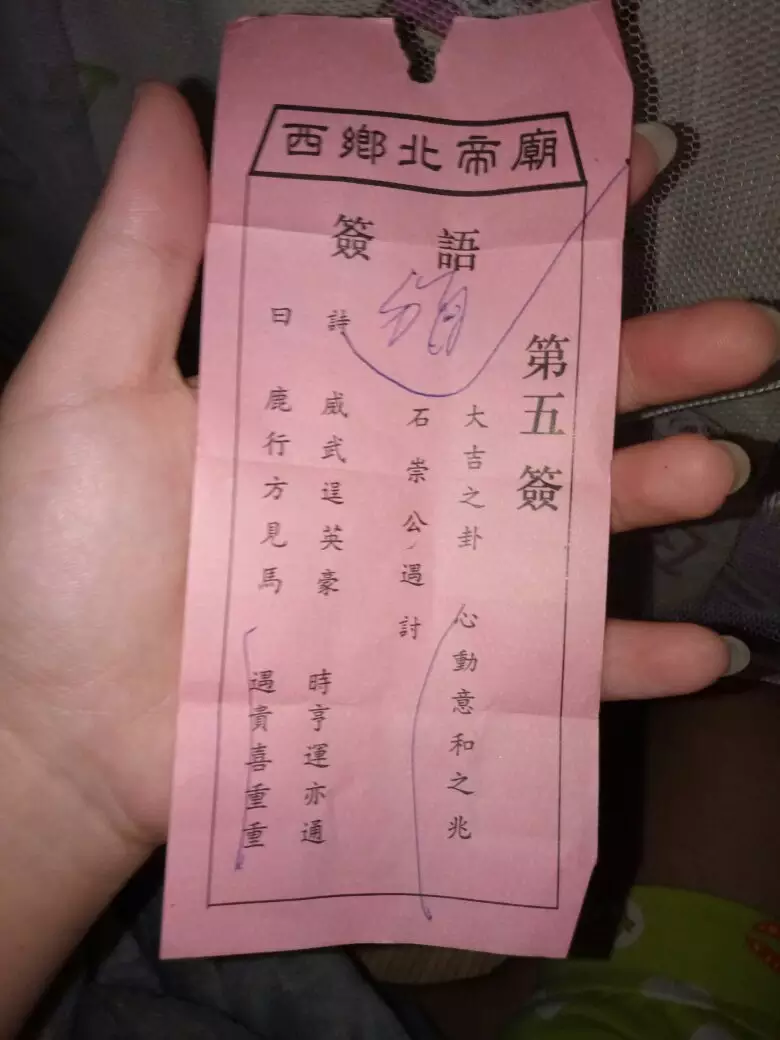 西鄉北帝廟
簽語
第五簽
大吉之卦 心動意和之兆
石崇公遇討
詩 威武逞英豪 時亨運亦通
曰 鹿行方見馬 遇貴喜重重